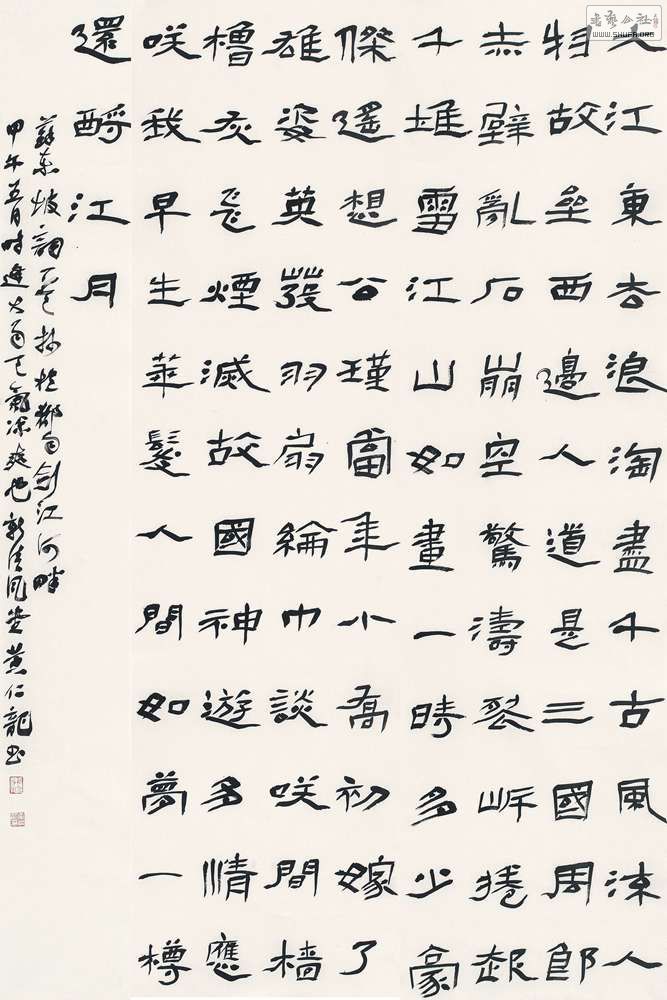 大江東去浪淘盡千古風流人
物故垒西邊人道是三國周郎
赤壁亂石崩空驚濤裂岸捲起
千堆雪江山如畫一時多少豪
傑遙想公瑾當年小喬初嫁了
雄姿英發羽扇綸巾談咲間檣
櫓灰飛煙滅故國神遊多情應
咲我早生華髮人間如夢一樽
還酹江月
蘇東坡詞於都匀劍江河畔
甲午五月時逢大雨天氣涼爽也清風堂黃仁龍書
書藝公社
WWW.SHUFA.ORG